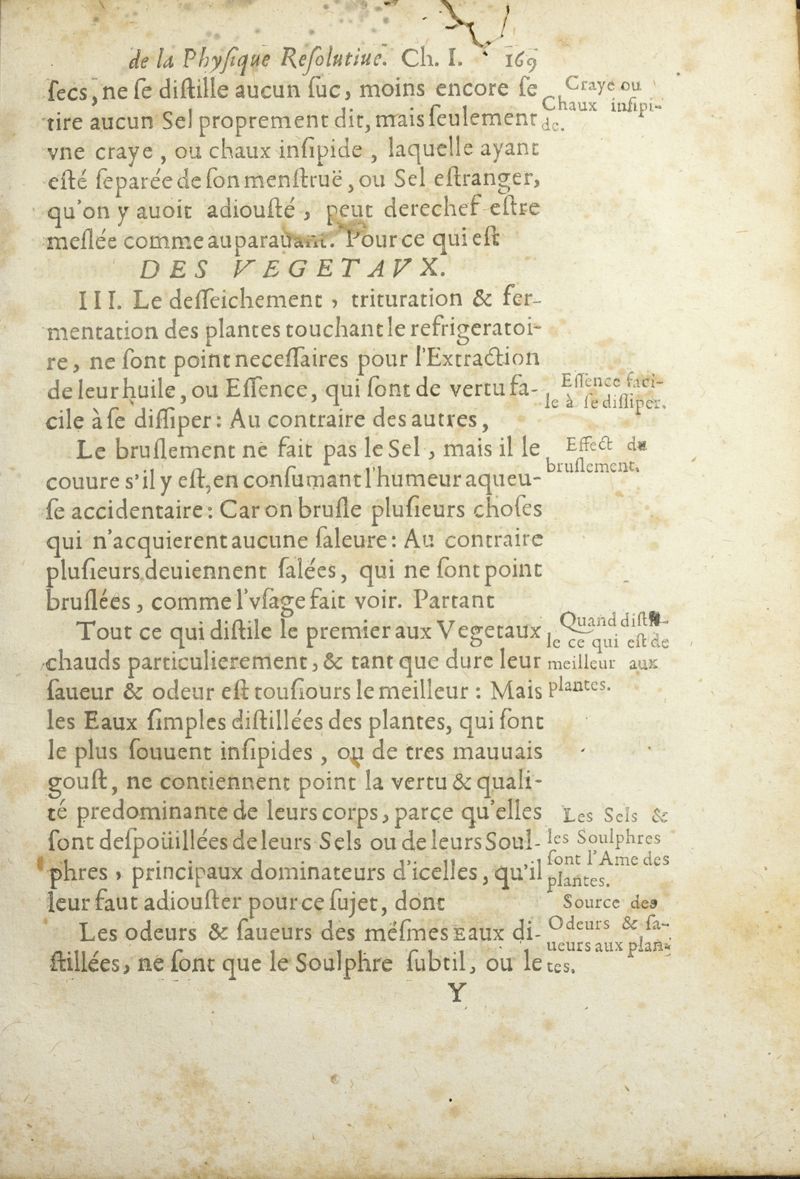 de la Phyſique Reſolutiue. Ch. I. 169
ſecs, ne ſe diſtille aucun ſuc, moins encore ſe
tire aucun Sel proprement dit, mais ſeulement
vne craye, ou chaux inſipide, laquelle ayant
eſté ſeparée de ſon menſtruë, ou Sel eſtranger,
qu'on y auoit adiouſté, peut derechef eſtre
meſlée comme auparauant. Pource qui eſt
Craye ou
Chaux inſipi-
de.
DES VEGETAVX.
III. Le deſſeichement, trituration & fer-
mentation des plantes touchant le refrigeratoi-
re, ne ſont point neceſſaires pour l'Extraction
de leur huile, ou Eſſence, qui ſont de vertu fa-
cile à ſe diſſiper: Au contraire des autres,
Eſſence faci-
le à ſe diſſiper.
Le bruſlement ne fait pas le Sel, mais il le
couure s'il y eſt, en conſumant l'humeur aqueu-
ſe accidentaire: Car on bruſle pluſieurs choſes
qui n'acquierent aucune ſaleure: Au contraire
pluſieurs deuiennent ſalées, qui ne ſont point
bruſlées, comme l'vſage fait voir. Partant
Effect du
bruſlement.
Tout ce qui diſtile le premier aux Vegetaux
chauds particulierement, & tant que dure leur
ſaueur & odeur eſt touſiours le meilleur: Mais
les Eaux ſimples diſtillées des plantes, qui ſont
le plus ſouuent inſipides, ou de tres mauuais
gouſt, ne contiennent point la vertu & quali-
té predominante de leurs corps, parce qu'elles
ſont deſpoüillées de leurs Sels ou de leurs Soul-
phres, principaux dominateurs d'icelles, qu'il
leur faut adiouſter pour ce ſujet, dont
Quand diſti-
le ce qui eſt de
meilleur aux
plantes.
Les Sels &
les Soulphres
ſont l'Ame des
plantes.
Les odeurs & ſaueurs des meſmes Eaux di-
ſtillées, ne ſont que le Soulphre ſubtil, ou le
Source des
Odeurs & ſa-
ueurs aux plan-
tes.
Y